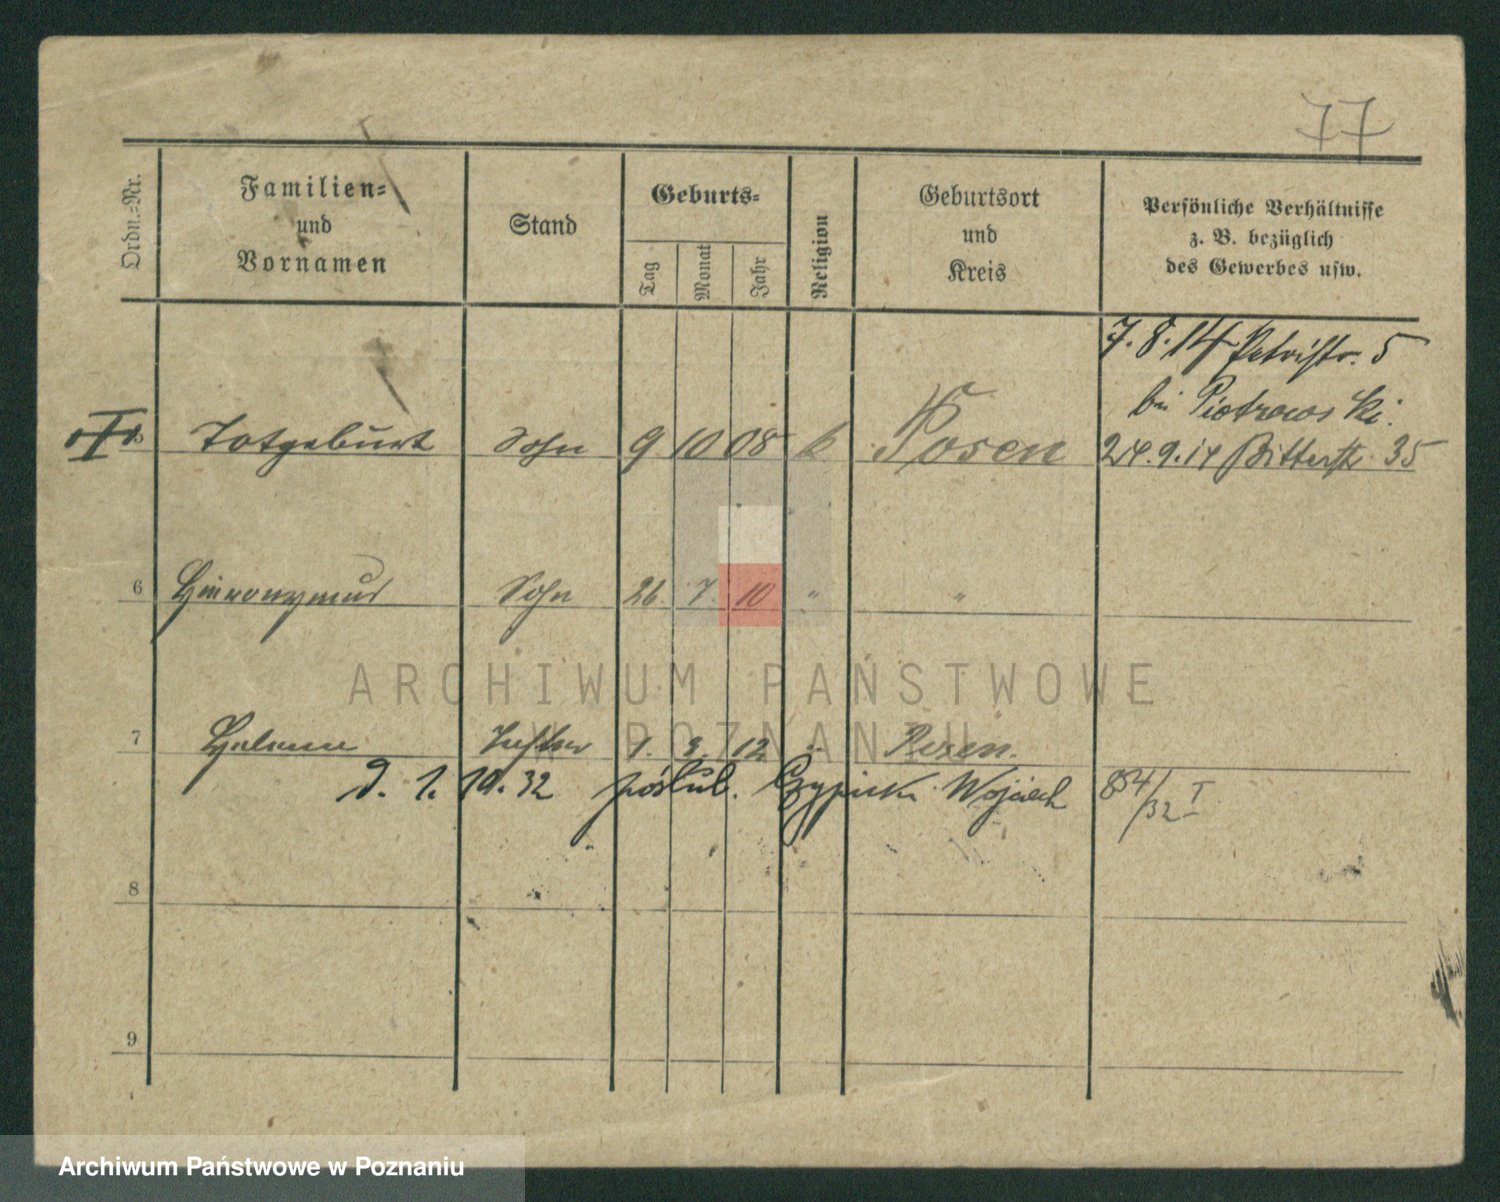 77
Ordn.-Nr.
Familien-
und
Vornamen
Stand
Geburts-
Tag
Monat
Jahr
Religion
Geburtsort
und
Kreis
Persönliche Verhältnisse
z. B. bezüglich
des Gewerbes usw.
7.8.14 Petristr. 5
bei Piotrowski.
5 Totgeburt Sohn 9 10 08 k. Posen 24.9.14 Ritterstr. 35
6 Hieronymus Sohn 26. 7. 10 " "
ARCHIWUM PAŃSTWOWE
W POZNANIU
7 Helene Tochter 1. 3. 12 " Posen.
d. 1. 10. 32 poślub. Wojciech 854/32 I
8
9
Archiwum Państwowe w Poznaniu